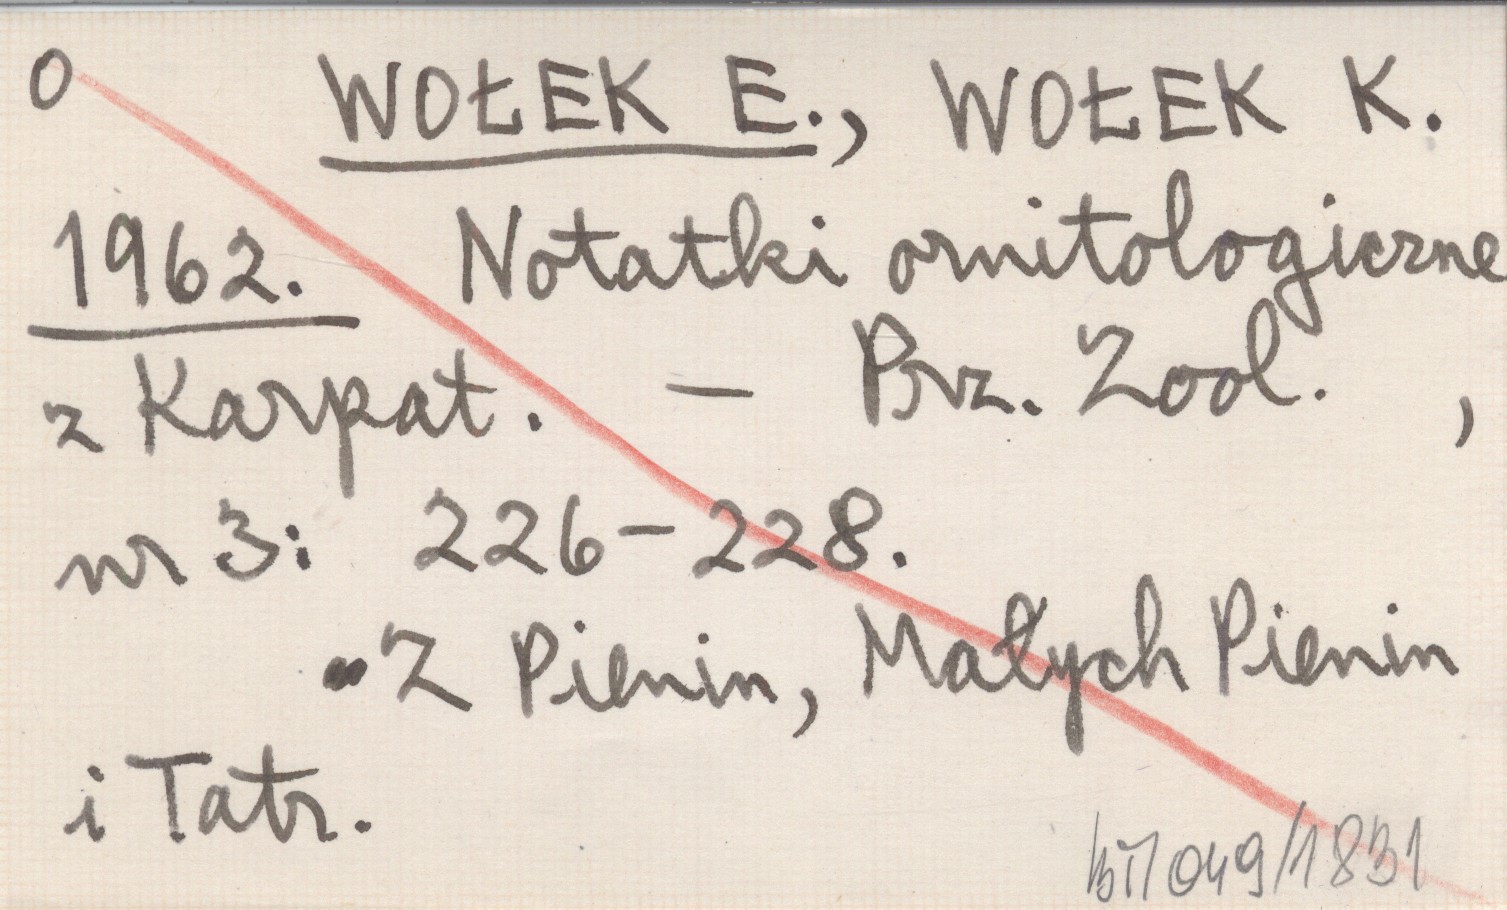 O WOŁEK E., WOŁEK K.
1962. Notatki ornitologiczne
z Karpat. – Prz. Zool. ,
nr 3: 226–228.
Z Pienin, Małych Pienin
i Tatr.
049/1831